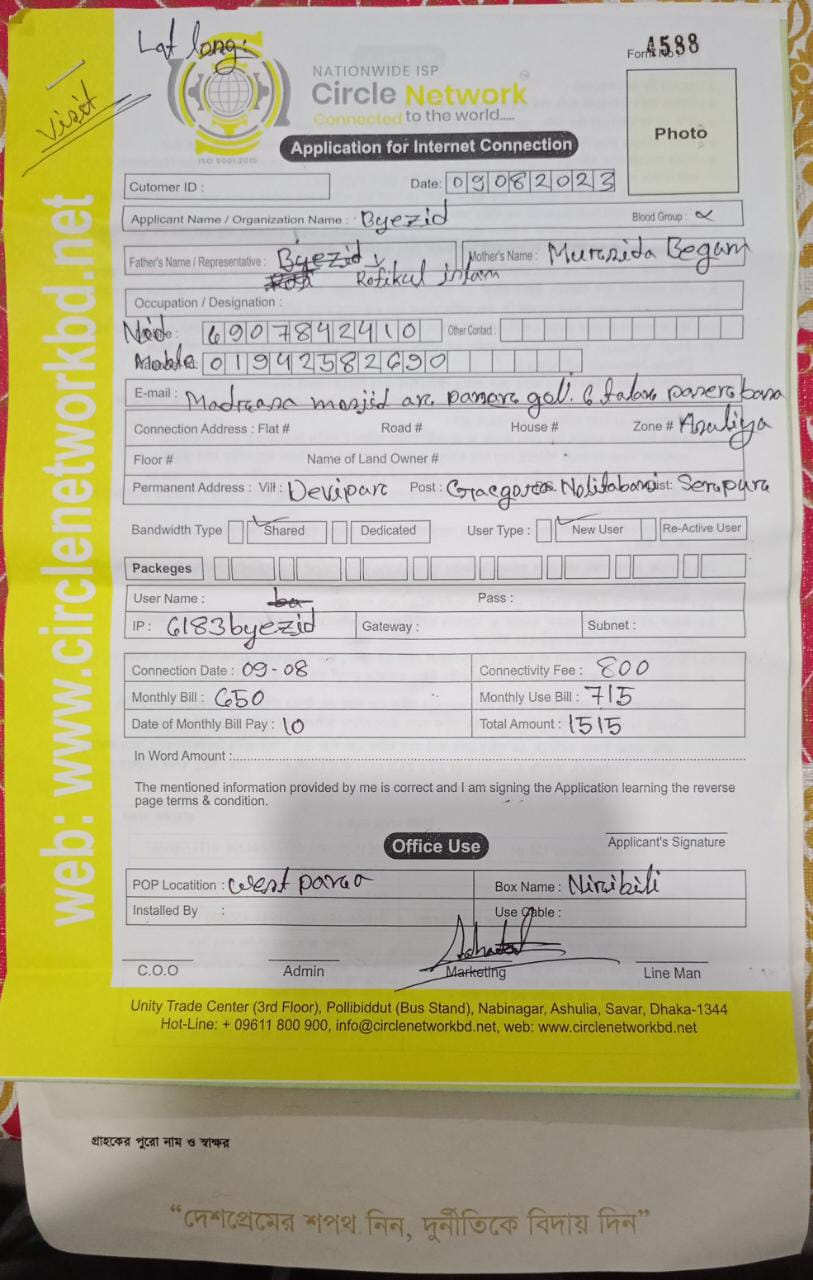 Lat long:
Visit
Form No : 4588
NATIONWIDE ISP
Circle Network
Connected to the world.....
ISO 9001:2015
Application for Internet Connection
Photo
Cutomer ID :
Date: 09082023
Applicant Name / Organization Name : Byezid
Blood Group :
Father's Name / Representative : Byezid
Rofikul islam
Mother's Name : Murasida Begam
Occupation / Designation :
Nid : 6907842410
Other Contact :
Mobile: 01942582690
E-mail : Madrasa masjid ar pasere goli 6 talar pasere basa
Connection Address : Flat # Road # House # Zone # Asuliya
Floor # Name of Land Owner #
Permanent Address : Vill : Devipare Post : Nolitabari Dist: Serepure
Bandwidth Type Shared Dedicated User Type : New User Re-Active User
Packeges
User Name : Pass :
IP : 6183byezid Gateway : Subnet :
Connection Date : 09-08 Connectivity Fee : 800
Monthly Bill : 650 Monthly Use Bill : 715
Date of Monthly Bill Pay : 10 Total Amount : 1515
In Word Amount :
The mentioned information provided by me is correct and I am signing the Application learning the reverse
page terms & condition.
Office Use
Applicant's Signature
POP Locatition : West para Box Name : Niribili
Installed By : Use Cable :
C.O.O Admin Marketing Line Man
Unity Trade Center (3rd Floor), Pollibiddut (Bus Stand), Nabinagar, Ashulia, Savar, Dhaka-1344
Hot-Line: + 09611 800 900, info@circlenetworkbd.net, web: www.circlenetworkbd.net
web: www.circlenetworkbd.net
গ্রাহকের পুরো নাম ও স্বাক্ষর
“দেশপ্রেমের শপথ নিন, দুর্নীতিকে বিদায় দিন”